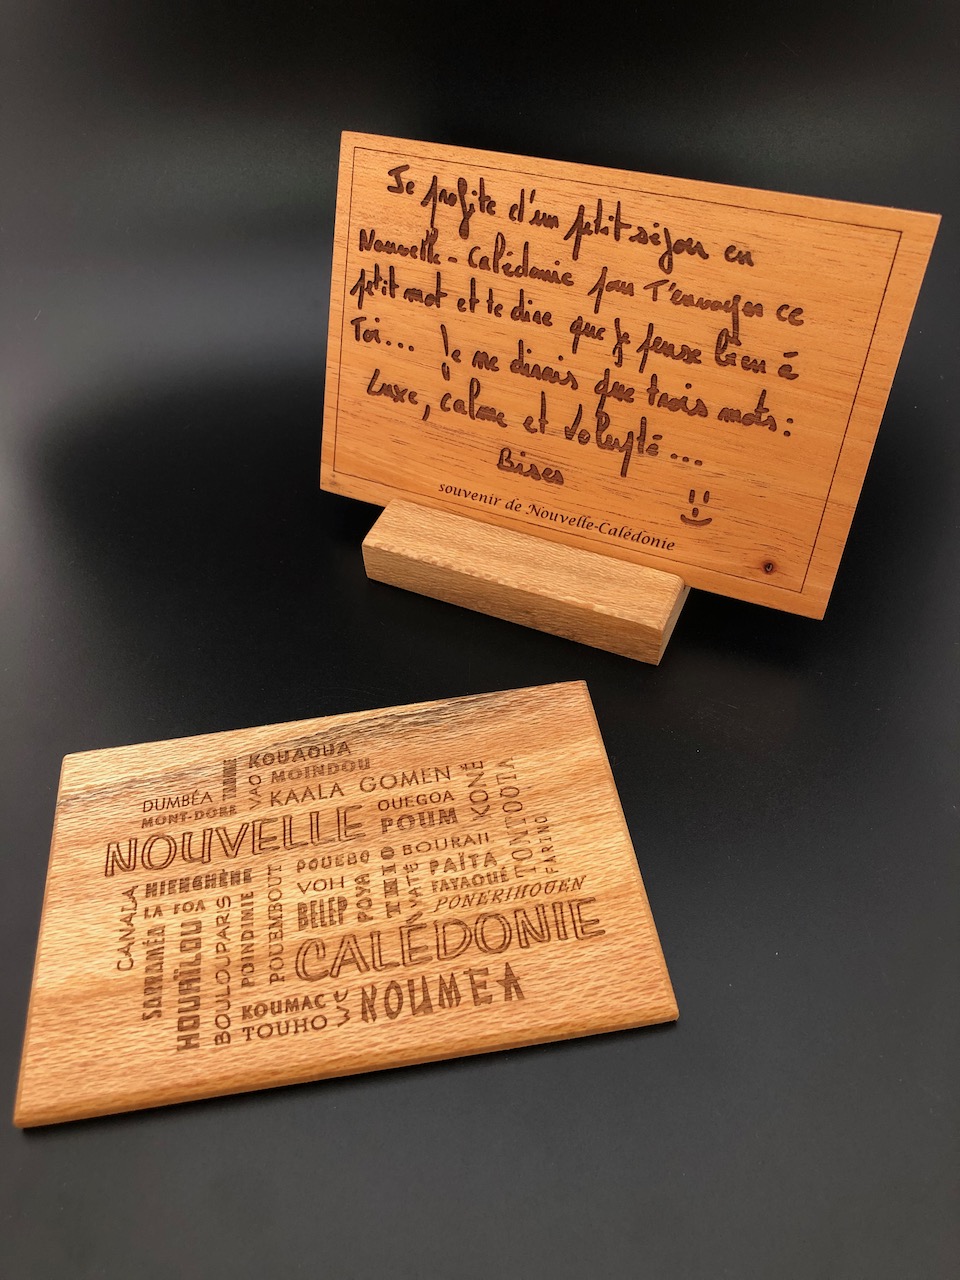 Je profite d'un petit séjour en
Nouvelle-Calédonie pour T'envoyer ce
petit mot et te dire que je pense bien à
Toi... Je ne dirais que trois mots:
Luxe, calme et Volupté...
Bises
souvenir de Nouvelle-Calédonie
KOUAOUA
MOINDOU
VAO
DUMBÉA
MONT-DORE
KAALA GOMEN
OUEGOA
POUM
KONÉ
PONTOOTA
NOUVELLE
POUEBO
BOURAIL
FARINO
HIENGHÈNE
VOH
POYA
THIO
YATÉ
PAÏTA
FAYAOUÉ
CANALA
LA FOA
BELEP
PONERIHOUEN
SARRAMÉA
HOUAÏLOU
BOULOUPARS
POINDINIE
POUEMBOUT
CALÉDONIE
KOUMAC
TOUHO
WÉ
NOUMEA